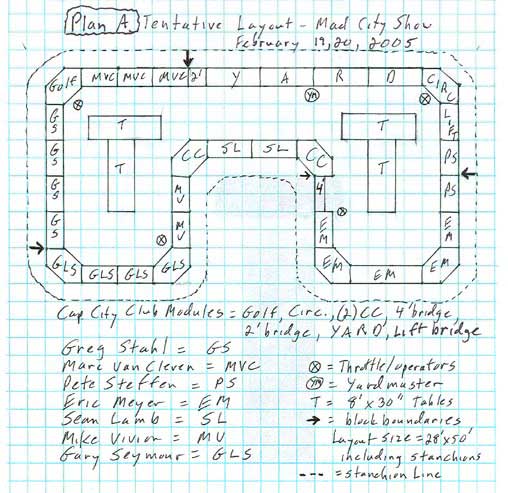 Plan A Tentative Layout - Mad City Show
February 19,20, 2005
Golf MVC MVC MVC 2' Y A R D CIRC
GS T YM T LIFT
GS CC SL SL CC PS
GS T MV 4' T PS
GS MV EM EM
GLS GLS GLS GLS EM EM EM
Cap City Club Modules = Golf, Circ., (2) CC, 4' bridge,
2' bridge, YARD, Lift bridge
Greg Stahl = GS
Marc Van Cleven = MVC
Pete Steffen = PS
Eric Meyer = EM
Sean Lamb = SL
Mike Vivion = MV
Gary Seymour = GLS
⊗ = Throttle/operators
YM = Yardmaster
T = 8'x30" Tables
→ = block boundaries
Layout size = 28'x50'
including stanchions
--- = stanchion Line